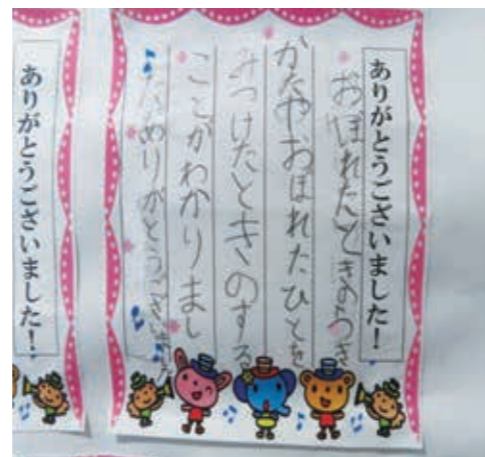 ありがとうございました!
おぼれたときのうき
かたやおぼれたひとを
みつけたときのする
ことがわかりまし
た。ありがとうございました
ありがとうございました!